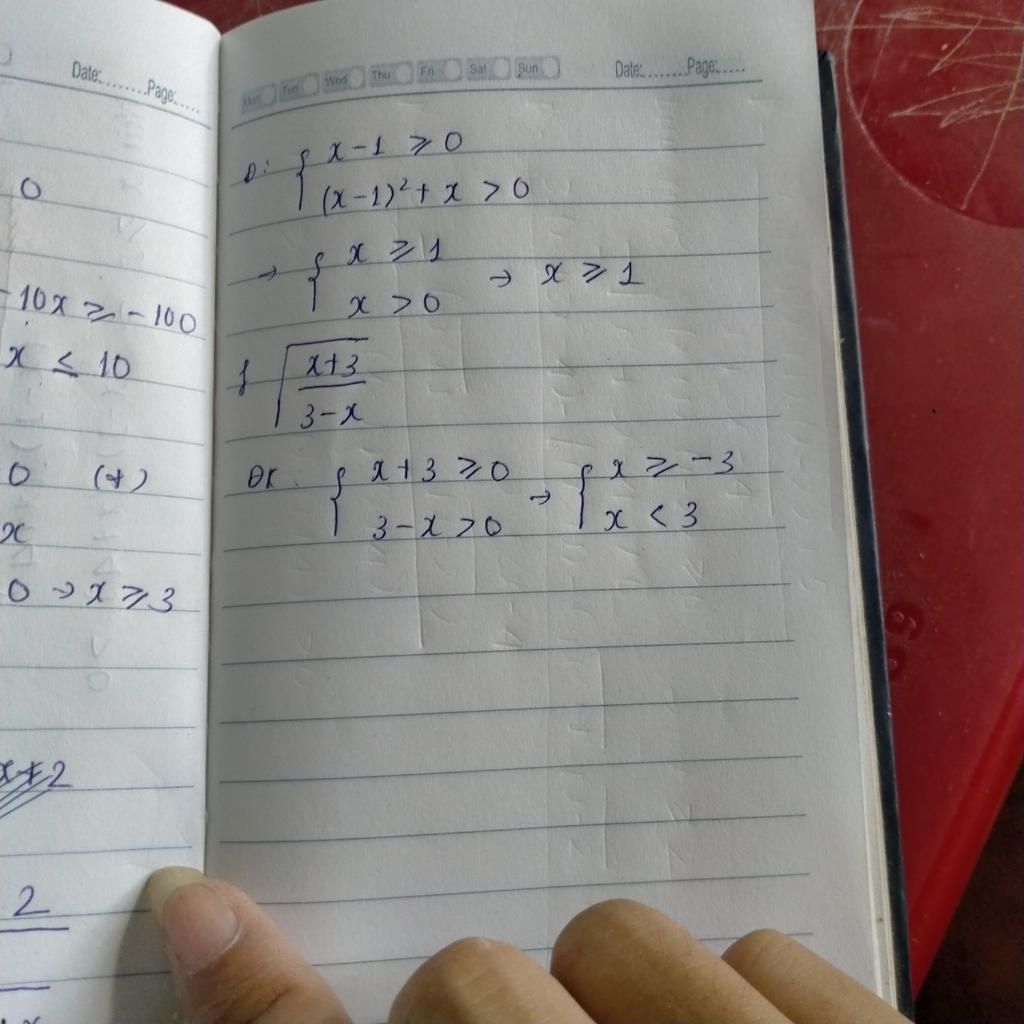 Date:........Page:.....
0
-10x ≥ -100
x ≤ 10
0 (*)
x
0 → x ≥ 3
x+2
2
Mon Tue Wed Thu Fri Sat Sun Date:........Page:.....
D: { x-1 ≥ 0
(x-1)² + x > 0
→ { x ≥ 1
x > 0 → x ≥ 1
f √((x+3)/(3-x))
ĐK: { x+3 ≥ 0 → { x ≥ -3
3-x > 0 x < 3